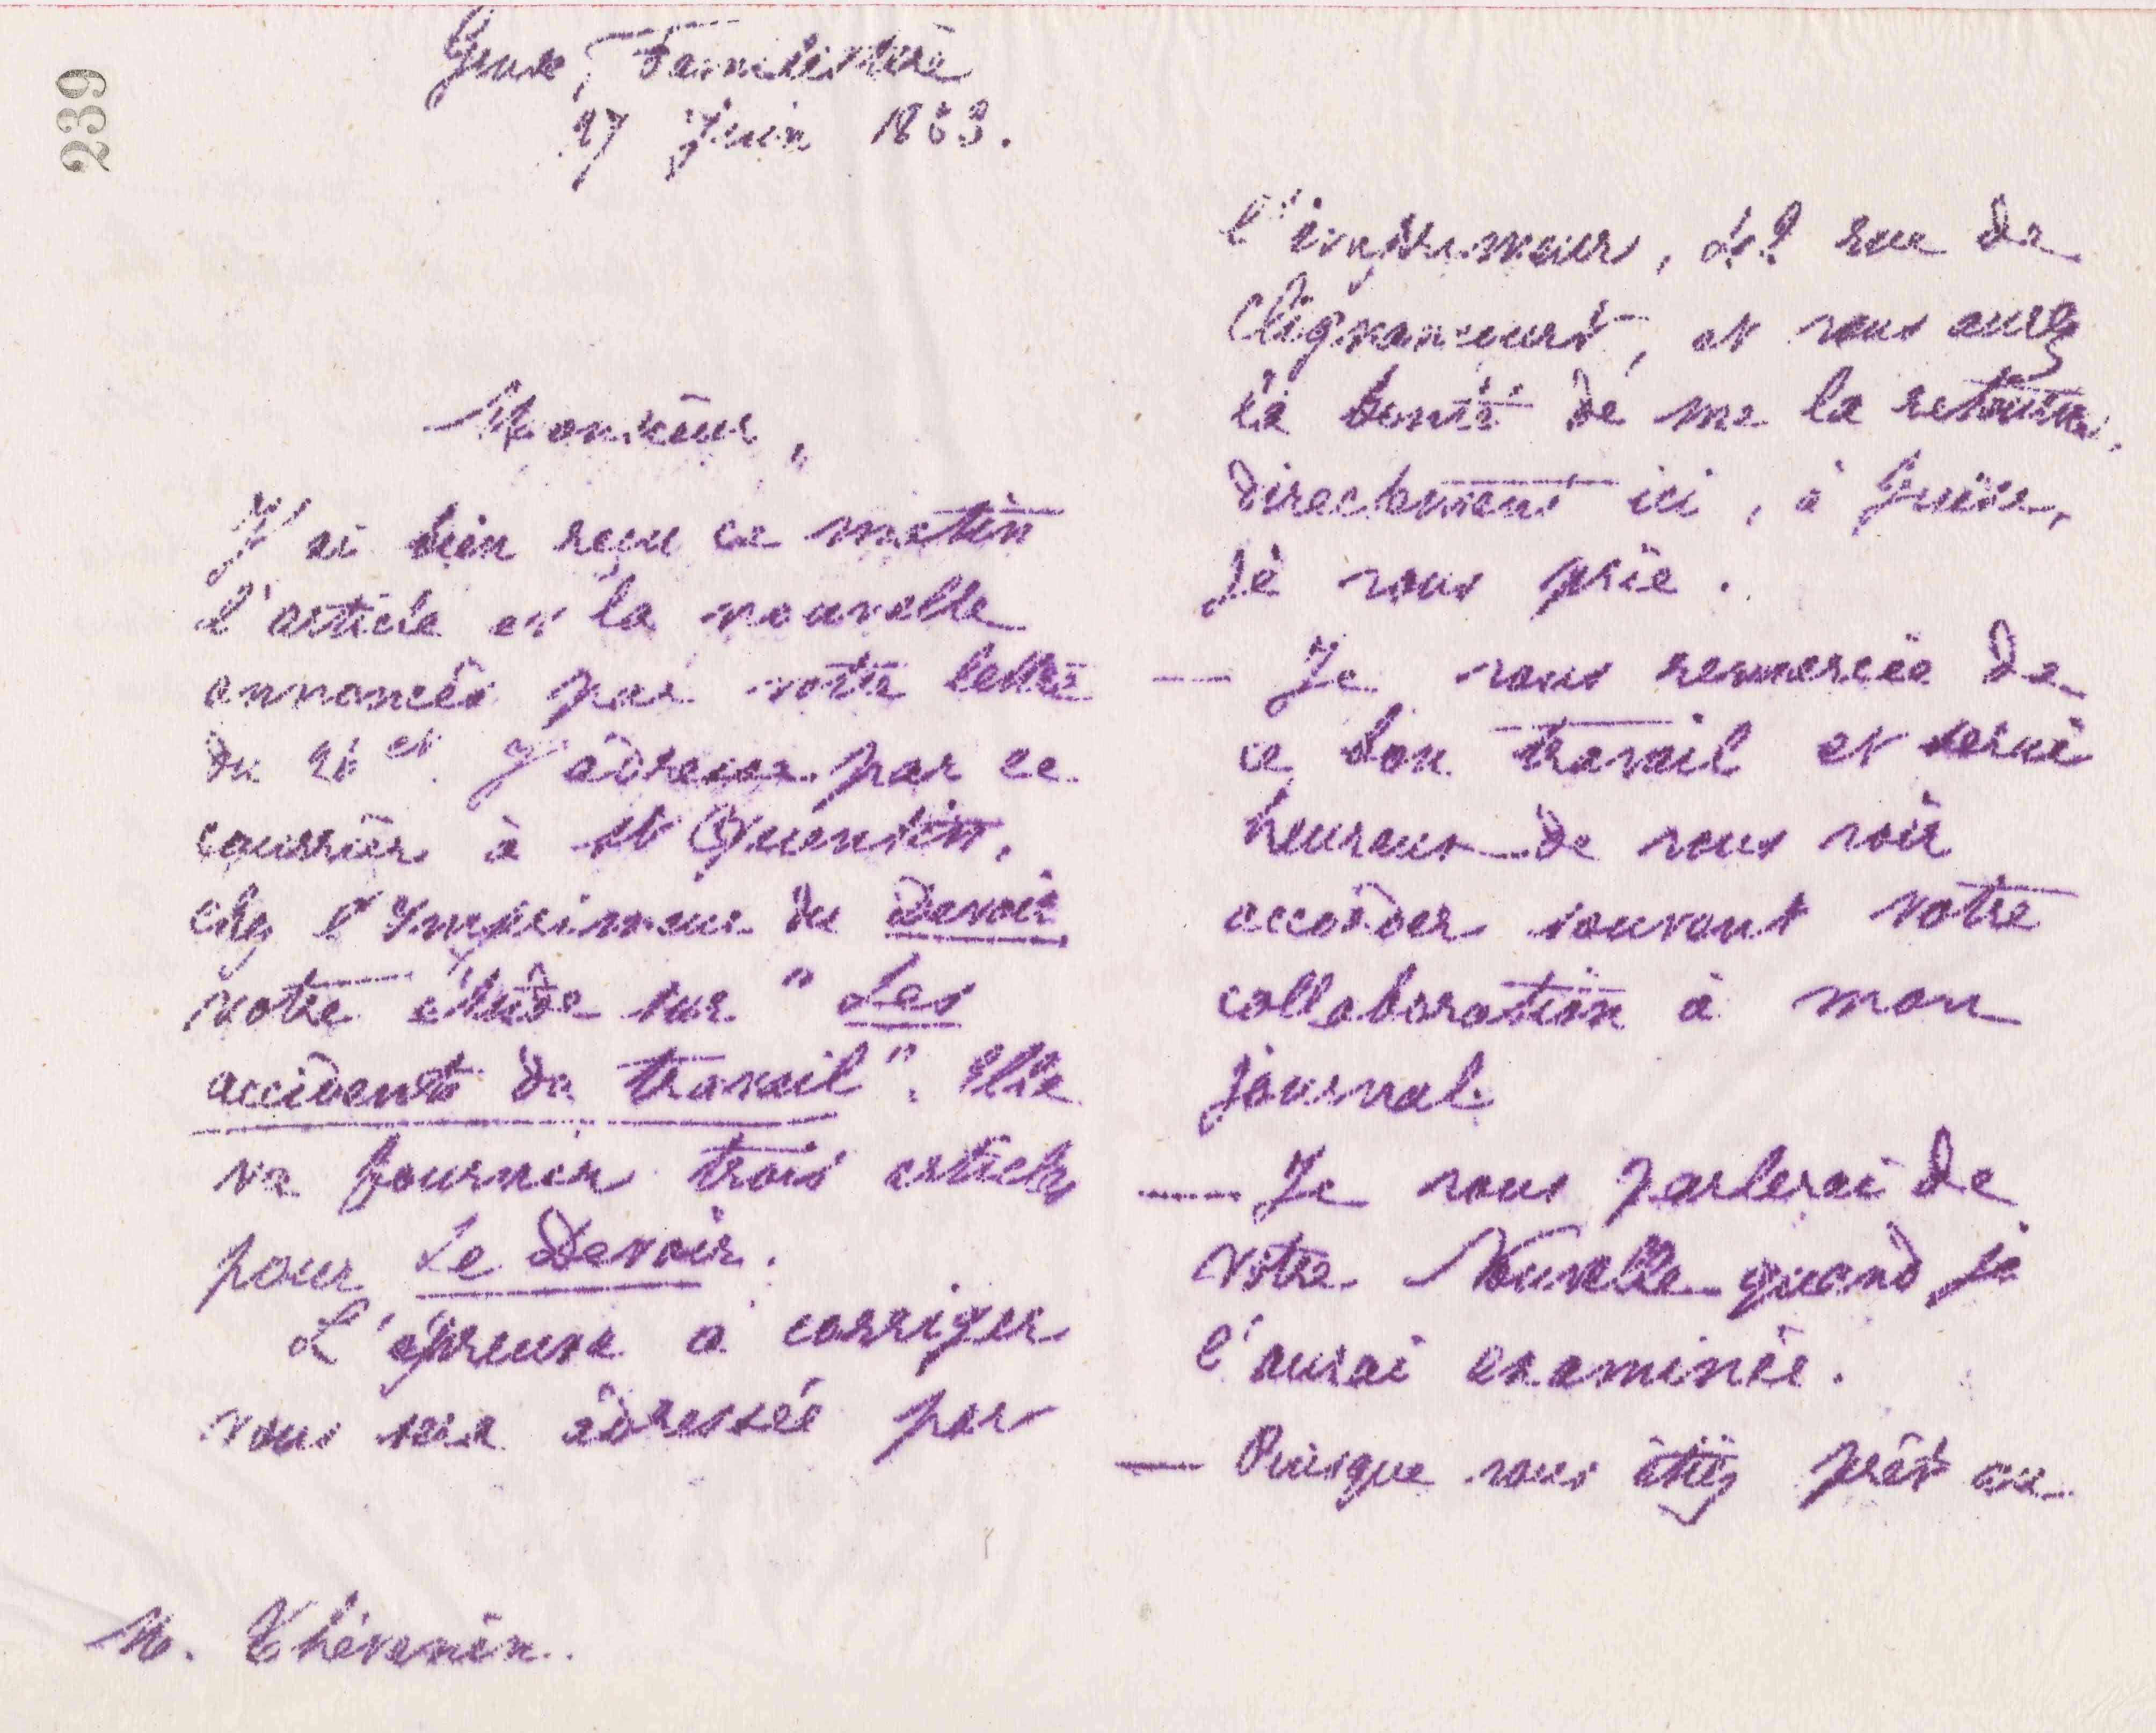 239
Guise, Familistère
27 Juin 1883.
Monsieur,
J'ai bien reçu ce matin
l'article et la nouvelle
annoncés par votre lettre
du 26 ct. J'adresse par ce
courrier à St Quentin,
chez l'Imprimeur du Devoir
votre étude sur " Les
accidents du travail ". Elle
va fournir trois articles
pour Le Devoir.
L'épreuve à corriger
vous sera adressée par
M. Thévenin.
l'imprimeur, rue de
Clignancourt, et vous aurez
la bonté de me la retourner
directement ici, à Guise,
je vous prie.
— Je vous remercie de
ce bon travail et serai
heureux de vous voir
accorder souvent votre
collaboration à mon
journal.
— Je vous parlerai de
votre Nouvelle quand je
l'aurai examinée.
— Puisque vous étiez prêt au